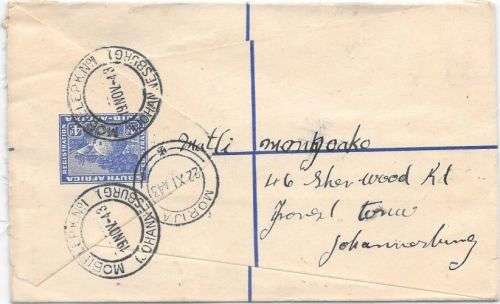 MOBILE P.K. No 1
(JOHANNESBURG)
19 NOV 43
REGISTRATION
SOUTH AFRICA
4d
MORIJA
22 XI 43
MOBILE P.K. No 1
(JOHANNESBURG)
19 NOV 43
46 Sherwood Rd
Forest Town
Johannesburg